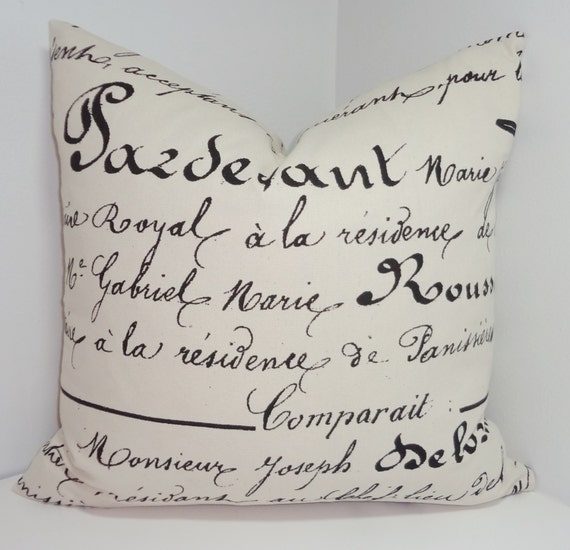 acceptant pour
Pardevant Marie
Royal à la résidence de
Me. Gabriel Marie Rouss
à la résidence de Panissières
Comparait :
Monsieur Joseph Delo
résidant au chef lieu de